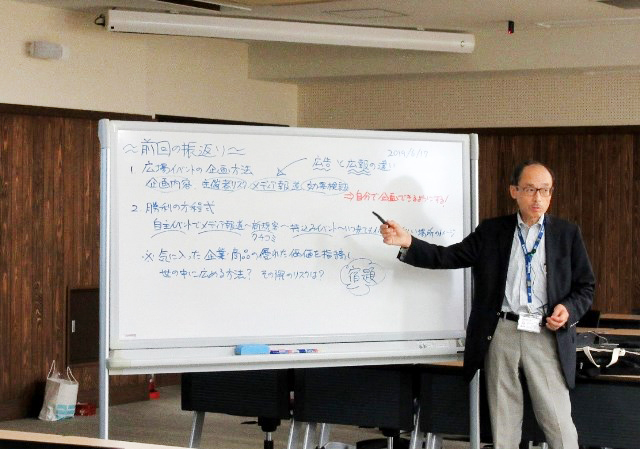 〜前回の振返り〜
1. 広場イベントの企画方法
広告と広報の違い
企画内容 主催者リスク メディア報道 効果検証
⇒自分で企画できるようにする!
2. 勝利の方程式
自主イベントでメディア報道〜新規客〜
クチコミ
※ 気に入った企業・商品の優れた価値を
世の中に広める方法? その際のリスクは?
宿題